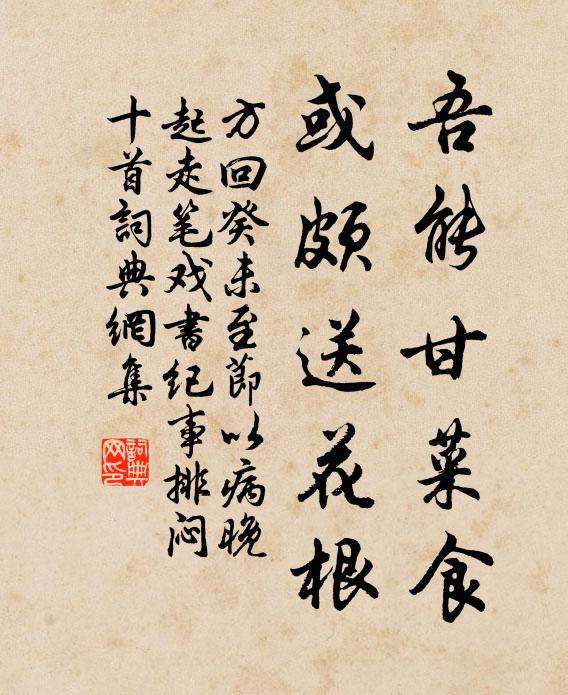 吾能甘菜食
或頗送花根
方回癸未至節以病晚
起走笔戏書纪事排闷
十首詞典網集
詞典网印